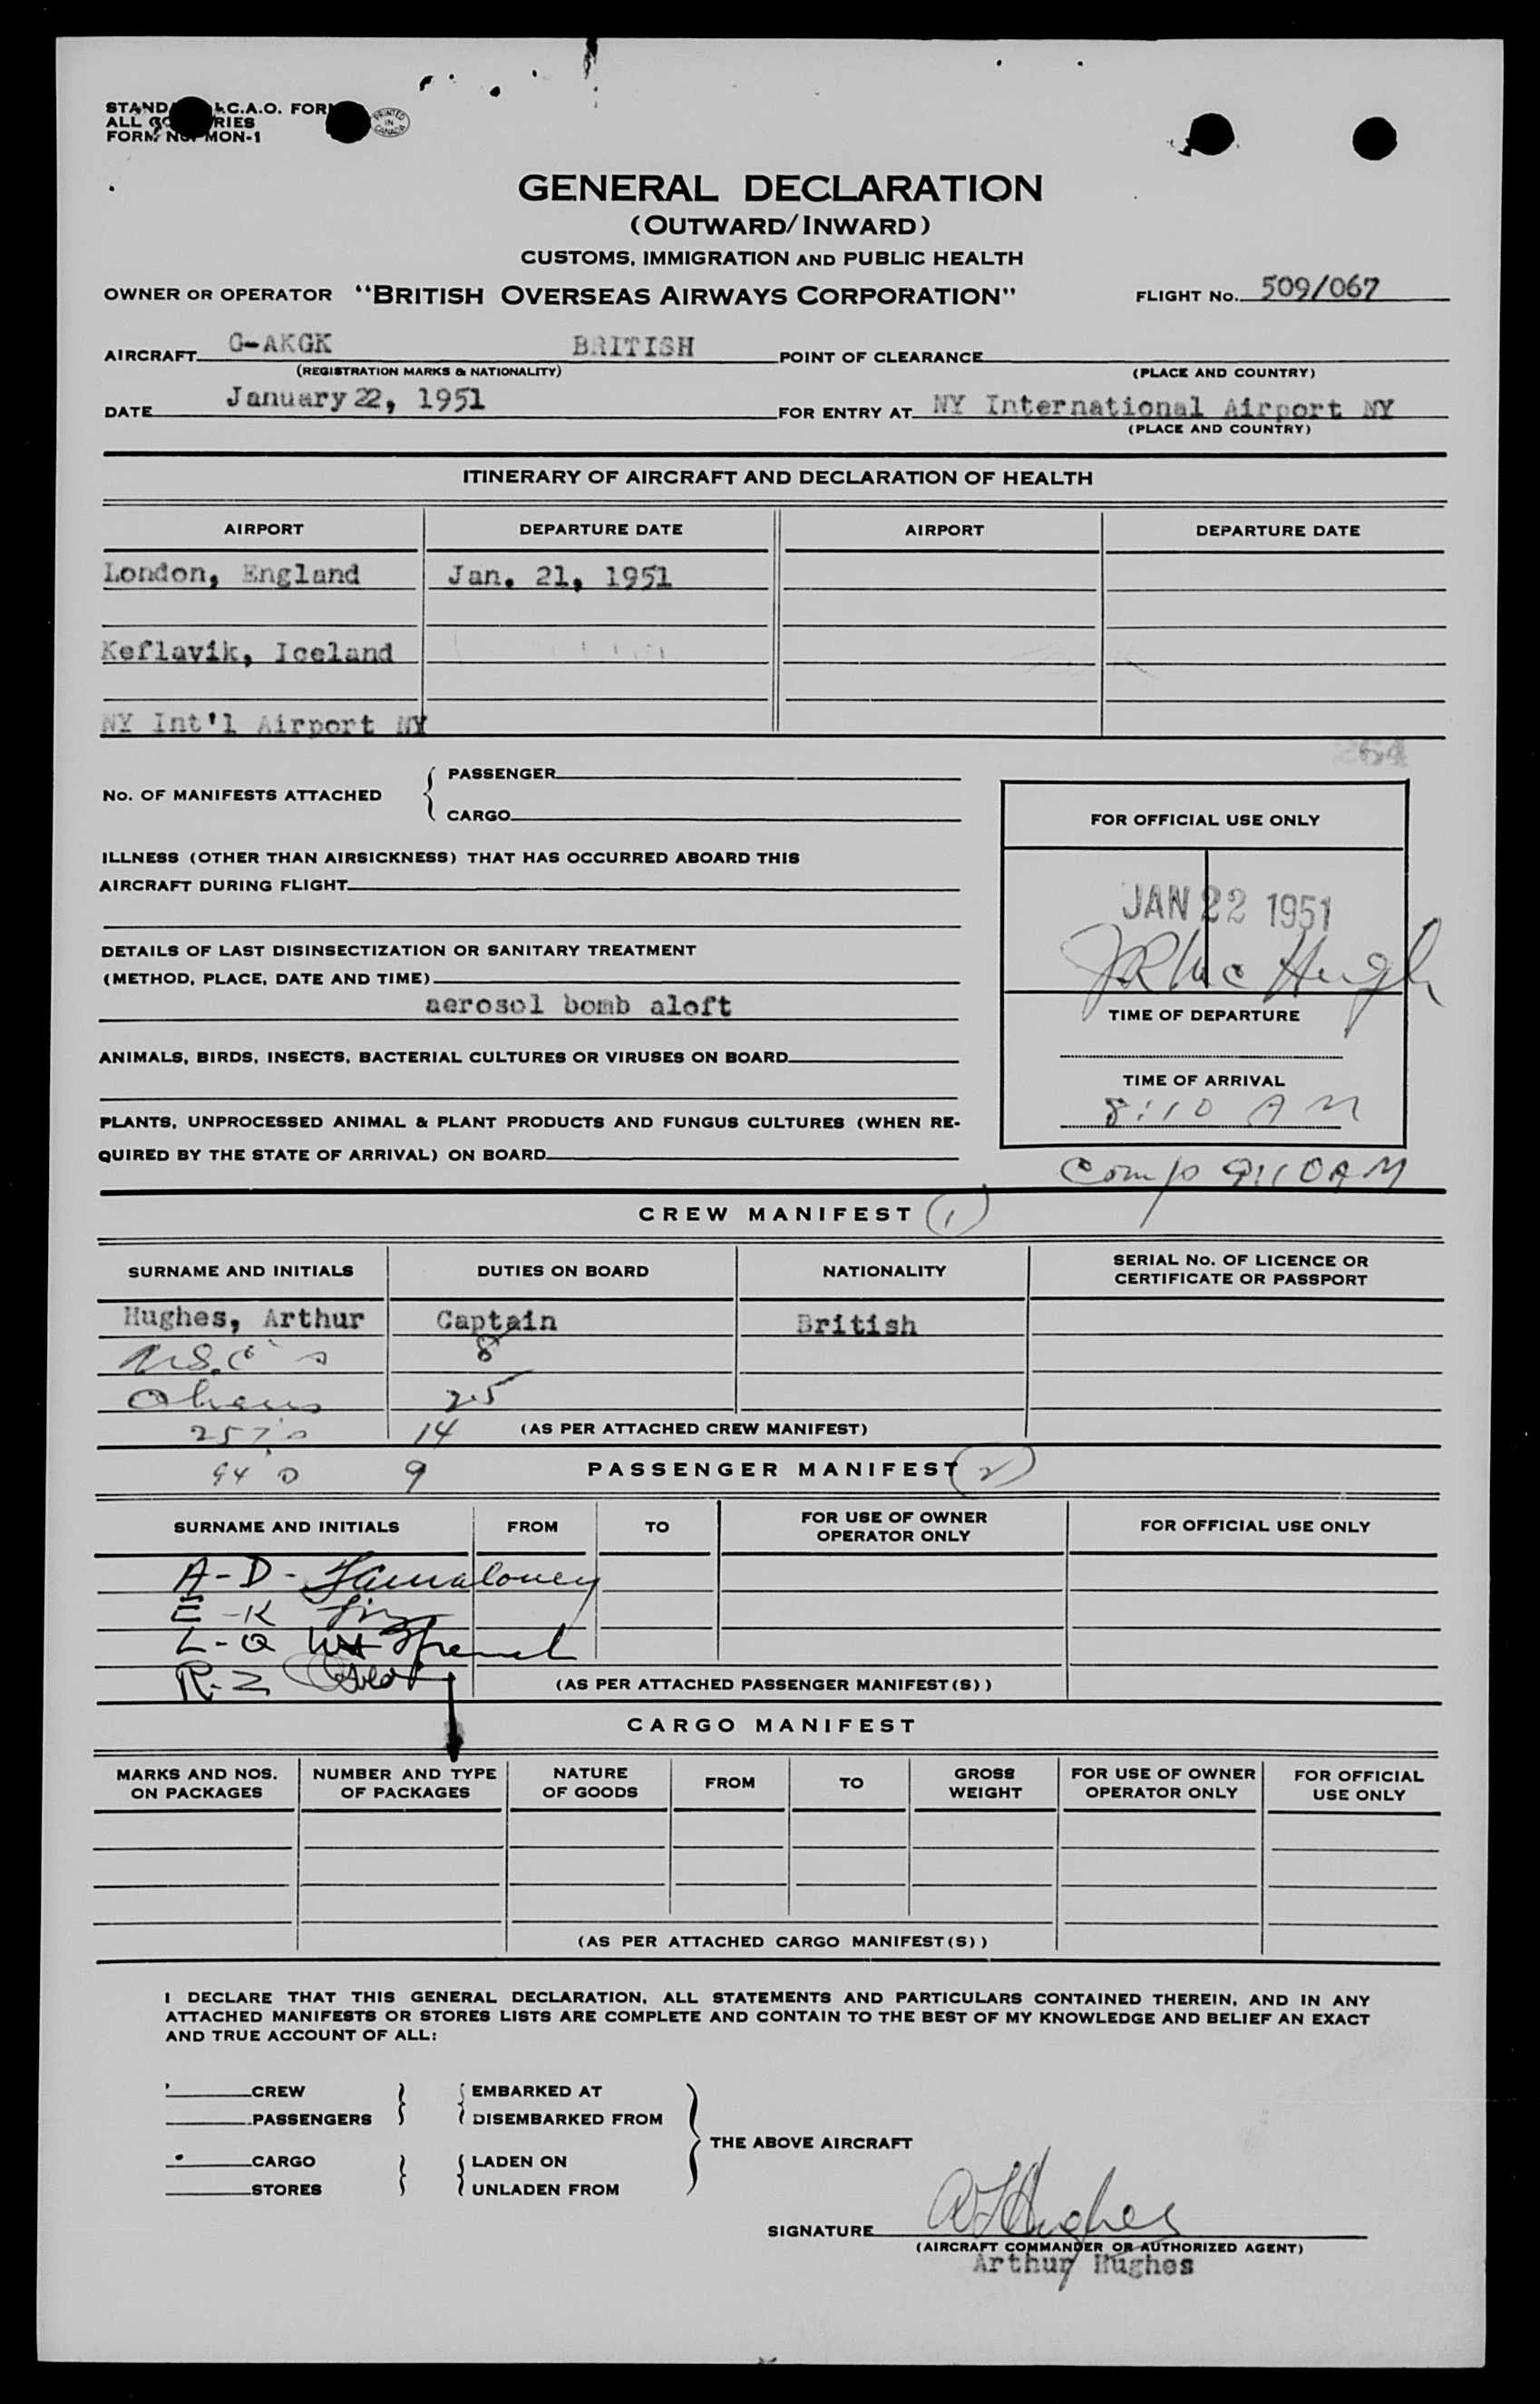 STAND I.C.A.O. FORM
ALL COUNTRIES
FORM No. MON-1
PRINTED IN CANADA
GENERAL DECLARATION
(OUTWARD/INWARD)
CUSTOMS, IMMIGRATION AND PUBLIC HEALTH
OWNER OR OPERATOR "BRITISH OVERSEAS AIRWAYS CORPORATION" FLIGHT No. 509/067
AIRCRAFT G-AKGK BRITISH POINT OF CLEARANCE
(REGISTRATION MARKS & NATIONALITY) (PLACE AND COUNTRY)
DATE January 22, 1951 FOR ENTRY AT NY International Airport NY
(PLACE AND COUNTRY)
ITINERARY OF AIRCRAFT AND DECLARATION OF HEALTH
AIRPORT DEPARTURE DATE AIRPORT DEPARTURE DATE
London, England Jan. 21, 1951
Keflavik, Iceland
NY Int'l Airport NY
264
No. OF MANIFESTS ATTACHED { PASSENGER
CARGO
FOR OFFICIAL USE ONLY
ILLNESS (OTHER THAN AIRSICKNESS) THAT HAS OCCURRED ABOARD THIS
AIRCRAFT DURING FLIGHT
JAN 22 1951
DETAILS OF LAST DISINSECTIZATION OR SANITARY TREATMENT
(METHOD, PLACE, DATE AND TIME)
aerosol bomb aloft
McHugh
TIME OF DEPARTURE
ANIMALS, BIRDS, INSECTS, BACTERIAL CULTURES OR VIRUSES ON BOARD
TIME OF ARRIVAL
8:10 AM
PLANTS, UNPROCESSED ANIMAL & PLANT PRODUCTS AND FUNGUS CULTURES (WHEN RE-
QUIRED BY THE STATE OF ARRIVAL) ON BOARD
Comp 9:10AM
CREW MANIFEST (1)
SURNAME AND INITIALS DUTIES ON BOARD NATIONALITY SERIAL No. OF LICENCE OR
CERTIFICATE OR PASSPORT
Hughes, Arthur Captain British
8
25
14 (AS PER ATTACHED CREW MANIFEST)
9 PASSENGER MANIFEST (2)
SURNAME AND INITIALS FROM TO FOR USE OF OWNER
OPERATOR ONLY FOR OFFICIAL USE ONLY
A-D-
E-K
L-Q
R-Z
(AS PER ATTACHED PASSENGER MANIFEST(S))
CARGO MANIFEST
MARKS AND NOS.
ON PACKAGES NUMBER AND TYPE
OF PACKAGES NATURE
OF GOODS FROM TO GROSS
WEIGHT FOR USE OF OWNER
OPERATOR ONLY FOR OFFICIAL
USE ONLY
(AS PER ATTACHED CARGO MANIFEST(S))
I DECLARE THAT THIS GENERAL DECLARATION, ALL STATEMENTS AND PARTICULARS CONTAINED THEREIN, AND IN ANY
ATTACHED MANIFESTS OR STORES LISTS ARE COMPLETE AND CONTAIN TO THE BEST OF MY KNOWLEDGE AND BELIEF AN EXACT
AND TRUE ACCOUNT OF ALL:
CREW } { EMBARKED AT
PASSENGERS } { DISEMBARKED FROM
} THE ABOVE AIRCRAFT
CARGO } { LADEN ON
STORES } { UNLADEN FROM
SIGNATURE A Hughes
(AIRCRAFT COMMANDER OR AUTHORIZED AGENT)
Arthur Hughes